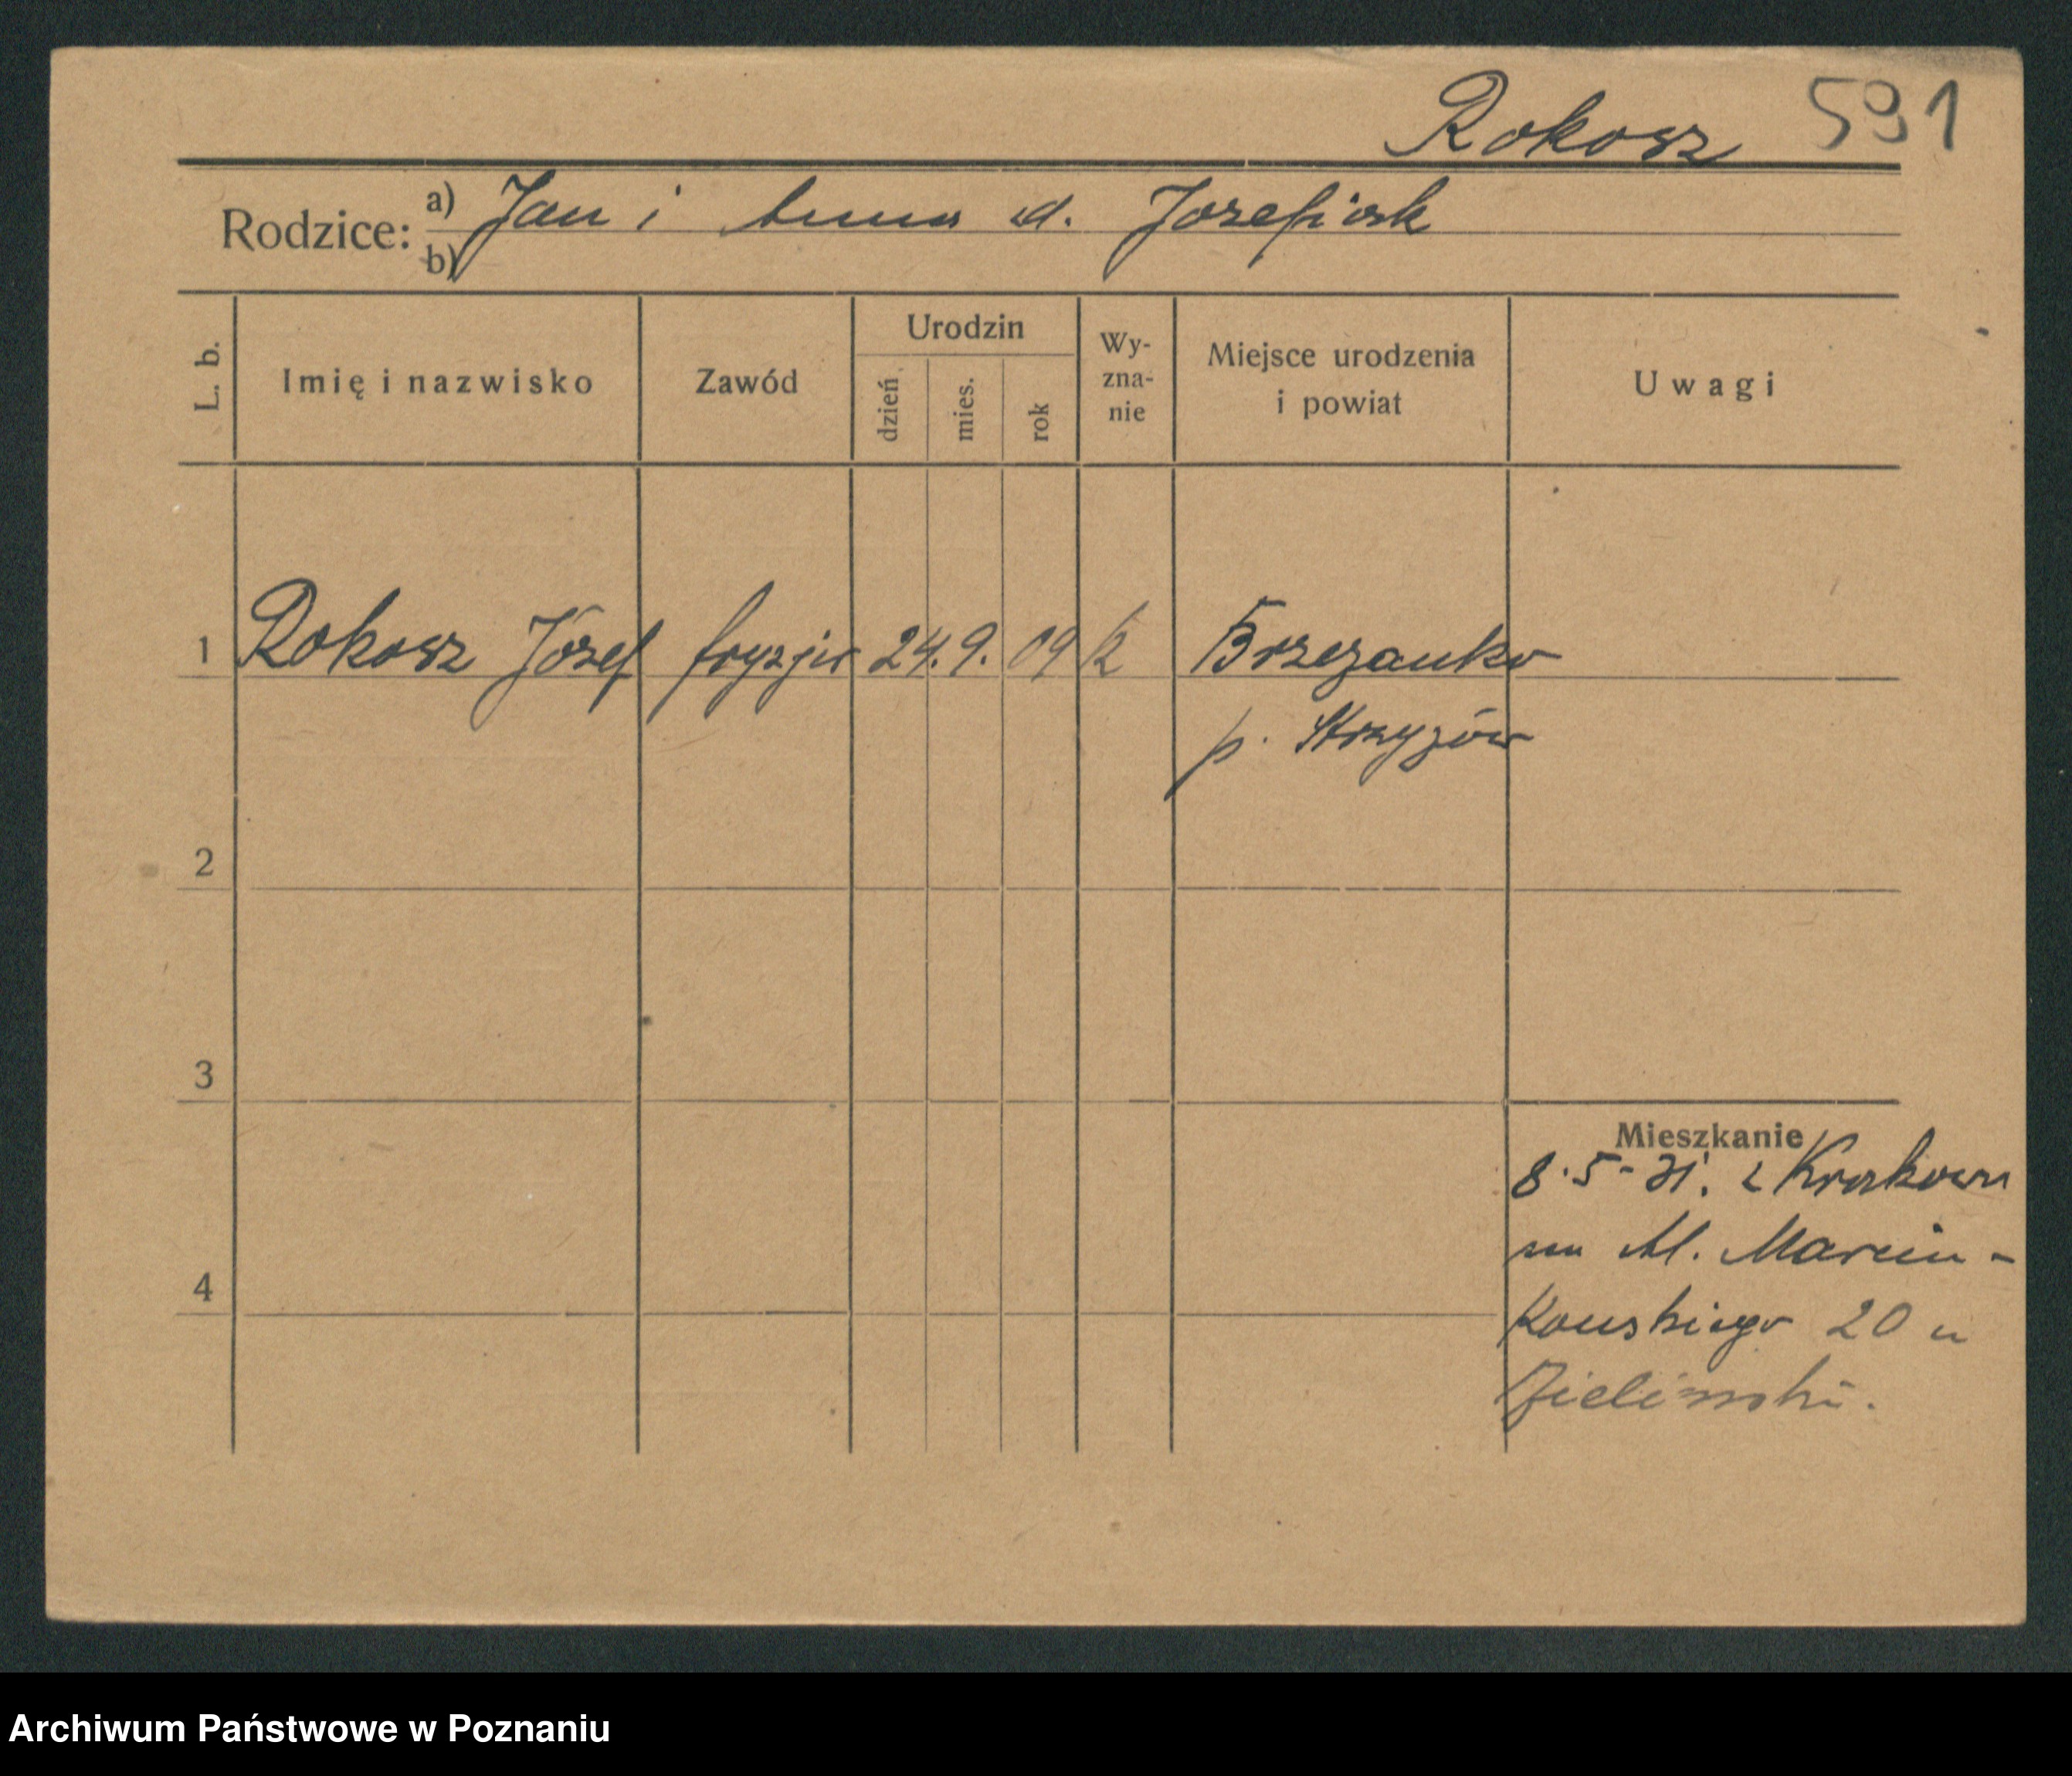 Rokosz 591
Rodzice: a) Jan i Anna d. Józefiak
b)
L. b.
Imię i nazwisko
Zawód
Urodzin
dzień
mies.
rok
Wy-
zna-
nie
Miejsce urodzenia
i powiat
Uwagi
1 Rokosz Józef fryzjer 24. 9. 09 k Brzezanka
p. Strzyżów
2
3
4
Mieszkanie
8.5-31. z Krakowa
na Al. Marcin-
kowskiego 20 u
Zielinski.
Archiwum Państwowe w Poznaniu